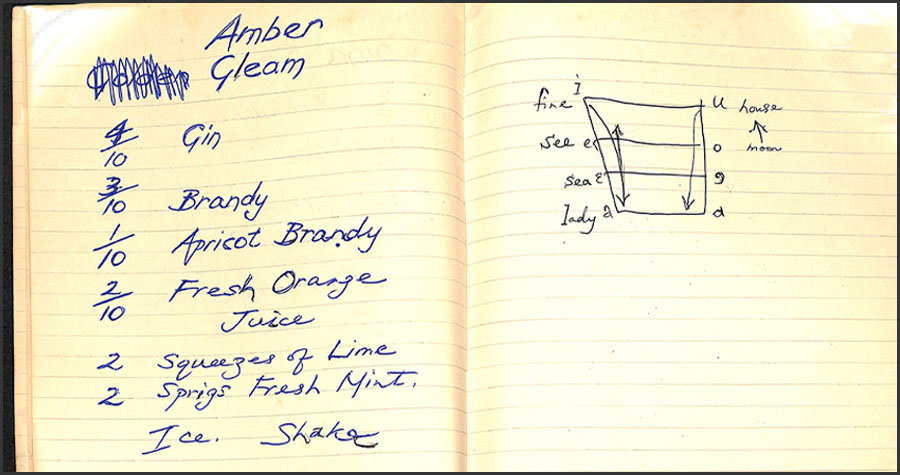 Amber
Gleam
4/10 Gin
3/10 Brandy
1/10 Apricot Brandy
2/10 Fresh Orange
Juice
2 Squeezes of Lime
2 Sprigs Fresh Mint.
Ice. Shake
fine i u house
see e o moon
sea ε
lady a a